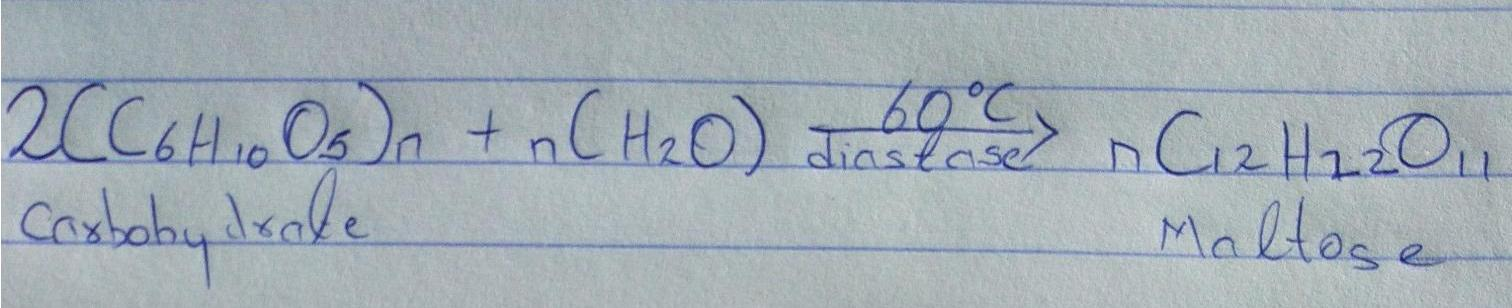 2(C₆H₁₀O₅)n + n(H₂O) 60°C diastase → nC₁₂H₂₂O₁₁
Carbohydrate Maltose